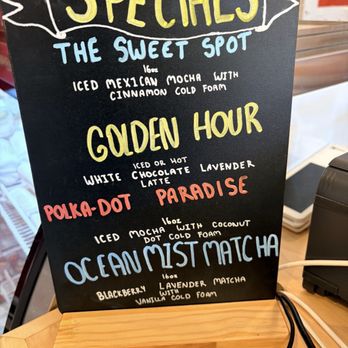 SPECIALS
THE SWEET SPOT
16oz
ICED MEXICAN MOCHA WITH
CINNAMON COLD FOAM
GOLDEN HOUR
ICED OR HOT
WHITE CHOCOLATE LAVENDER
LATTE
POLKA-DOT PARADISE
16oz
ICED MOCHA WITH COCONUT
DOT COLD FOAM
OCEAN MIST MATCHA
16oz
BLACKBERRY LAVENDER MATCHA
WITH
VANILLA COLD FOAM